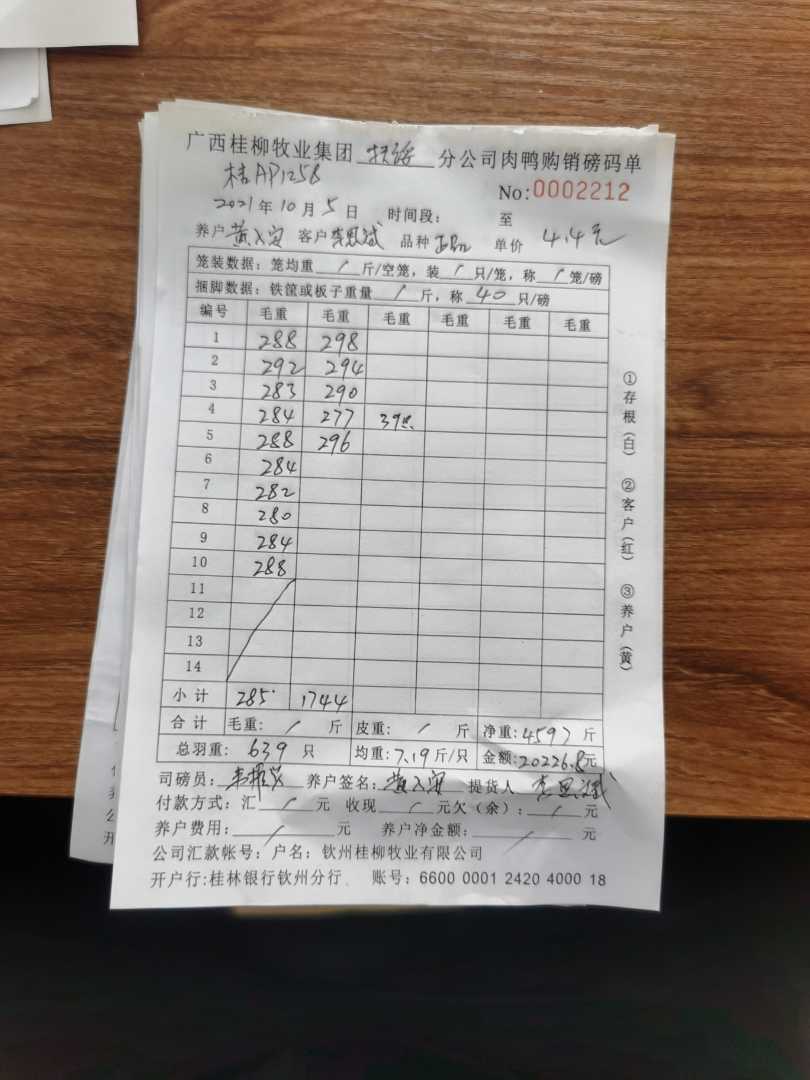 广西桂柳牧业集团 扶绥 分公司肉鸭购销磅码单
桂AP1258
No:0002212
2021年10月5日 时间段: 至
养户 黄 客户 李思斌 品种 正品 单价 4.4元
笼装数据: 笼均重 / 斤/空笼, 装 / 只/笼, 称 / 笼/磅
捆脚数据: 铁筐或板子重量 / 斤, 称 40 只/磅
编号 毛重 毛重 毛重 毛重 毛重 毛重
1 288 298
2 292 294
3 283 290
4 284 277 39只
5 288 296
6 284
7 282
8 280
9 284
10 288
11
12
13
14
小计 285 1744
合计 毛重: / 斤 皮重: / 斤 净重: 4597 斤
总羽重: 639 只 均重: 7.19 斤/只 金额: 20226.8元
司磅员: 养户签名: 黄 提货人 李思斌
付款方式: 汇 / 元 收现 / 元欠(余): / 元
养户费用: / 元 养户净金额: / 元
公司汇款帐号: 户名: 钦州桂柳牧业有限公司
开户行:桂林银行钦州分行 账号: 6600 0001 2420 4000 18
①存根(白) ②客户(红) ③养户(黄)